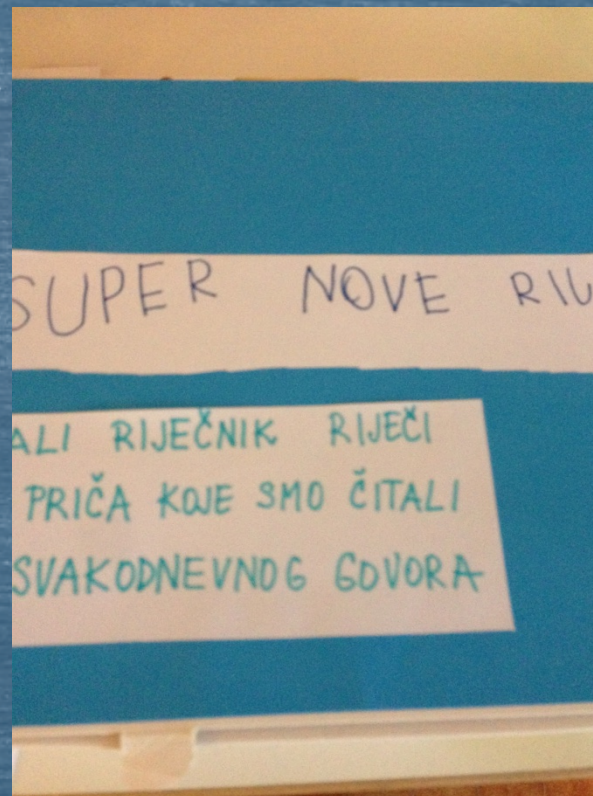 SUPER NOVE
ALI RIJEČNIK RIJEČI
PRIČA KOJE SMO ČITALI
SVAKODNEVNOG GOVORA